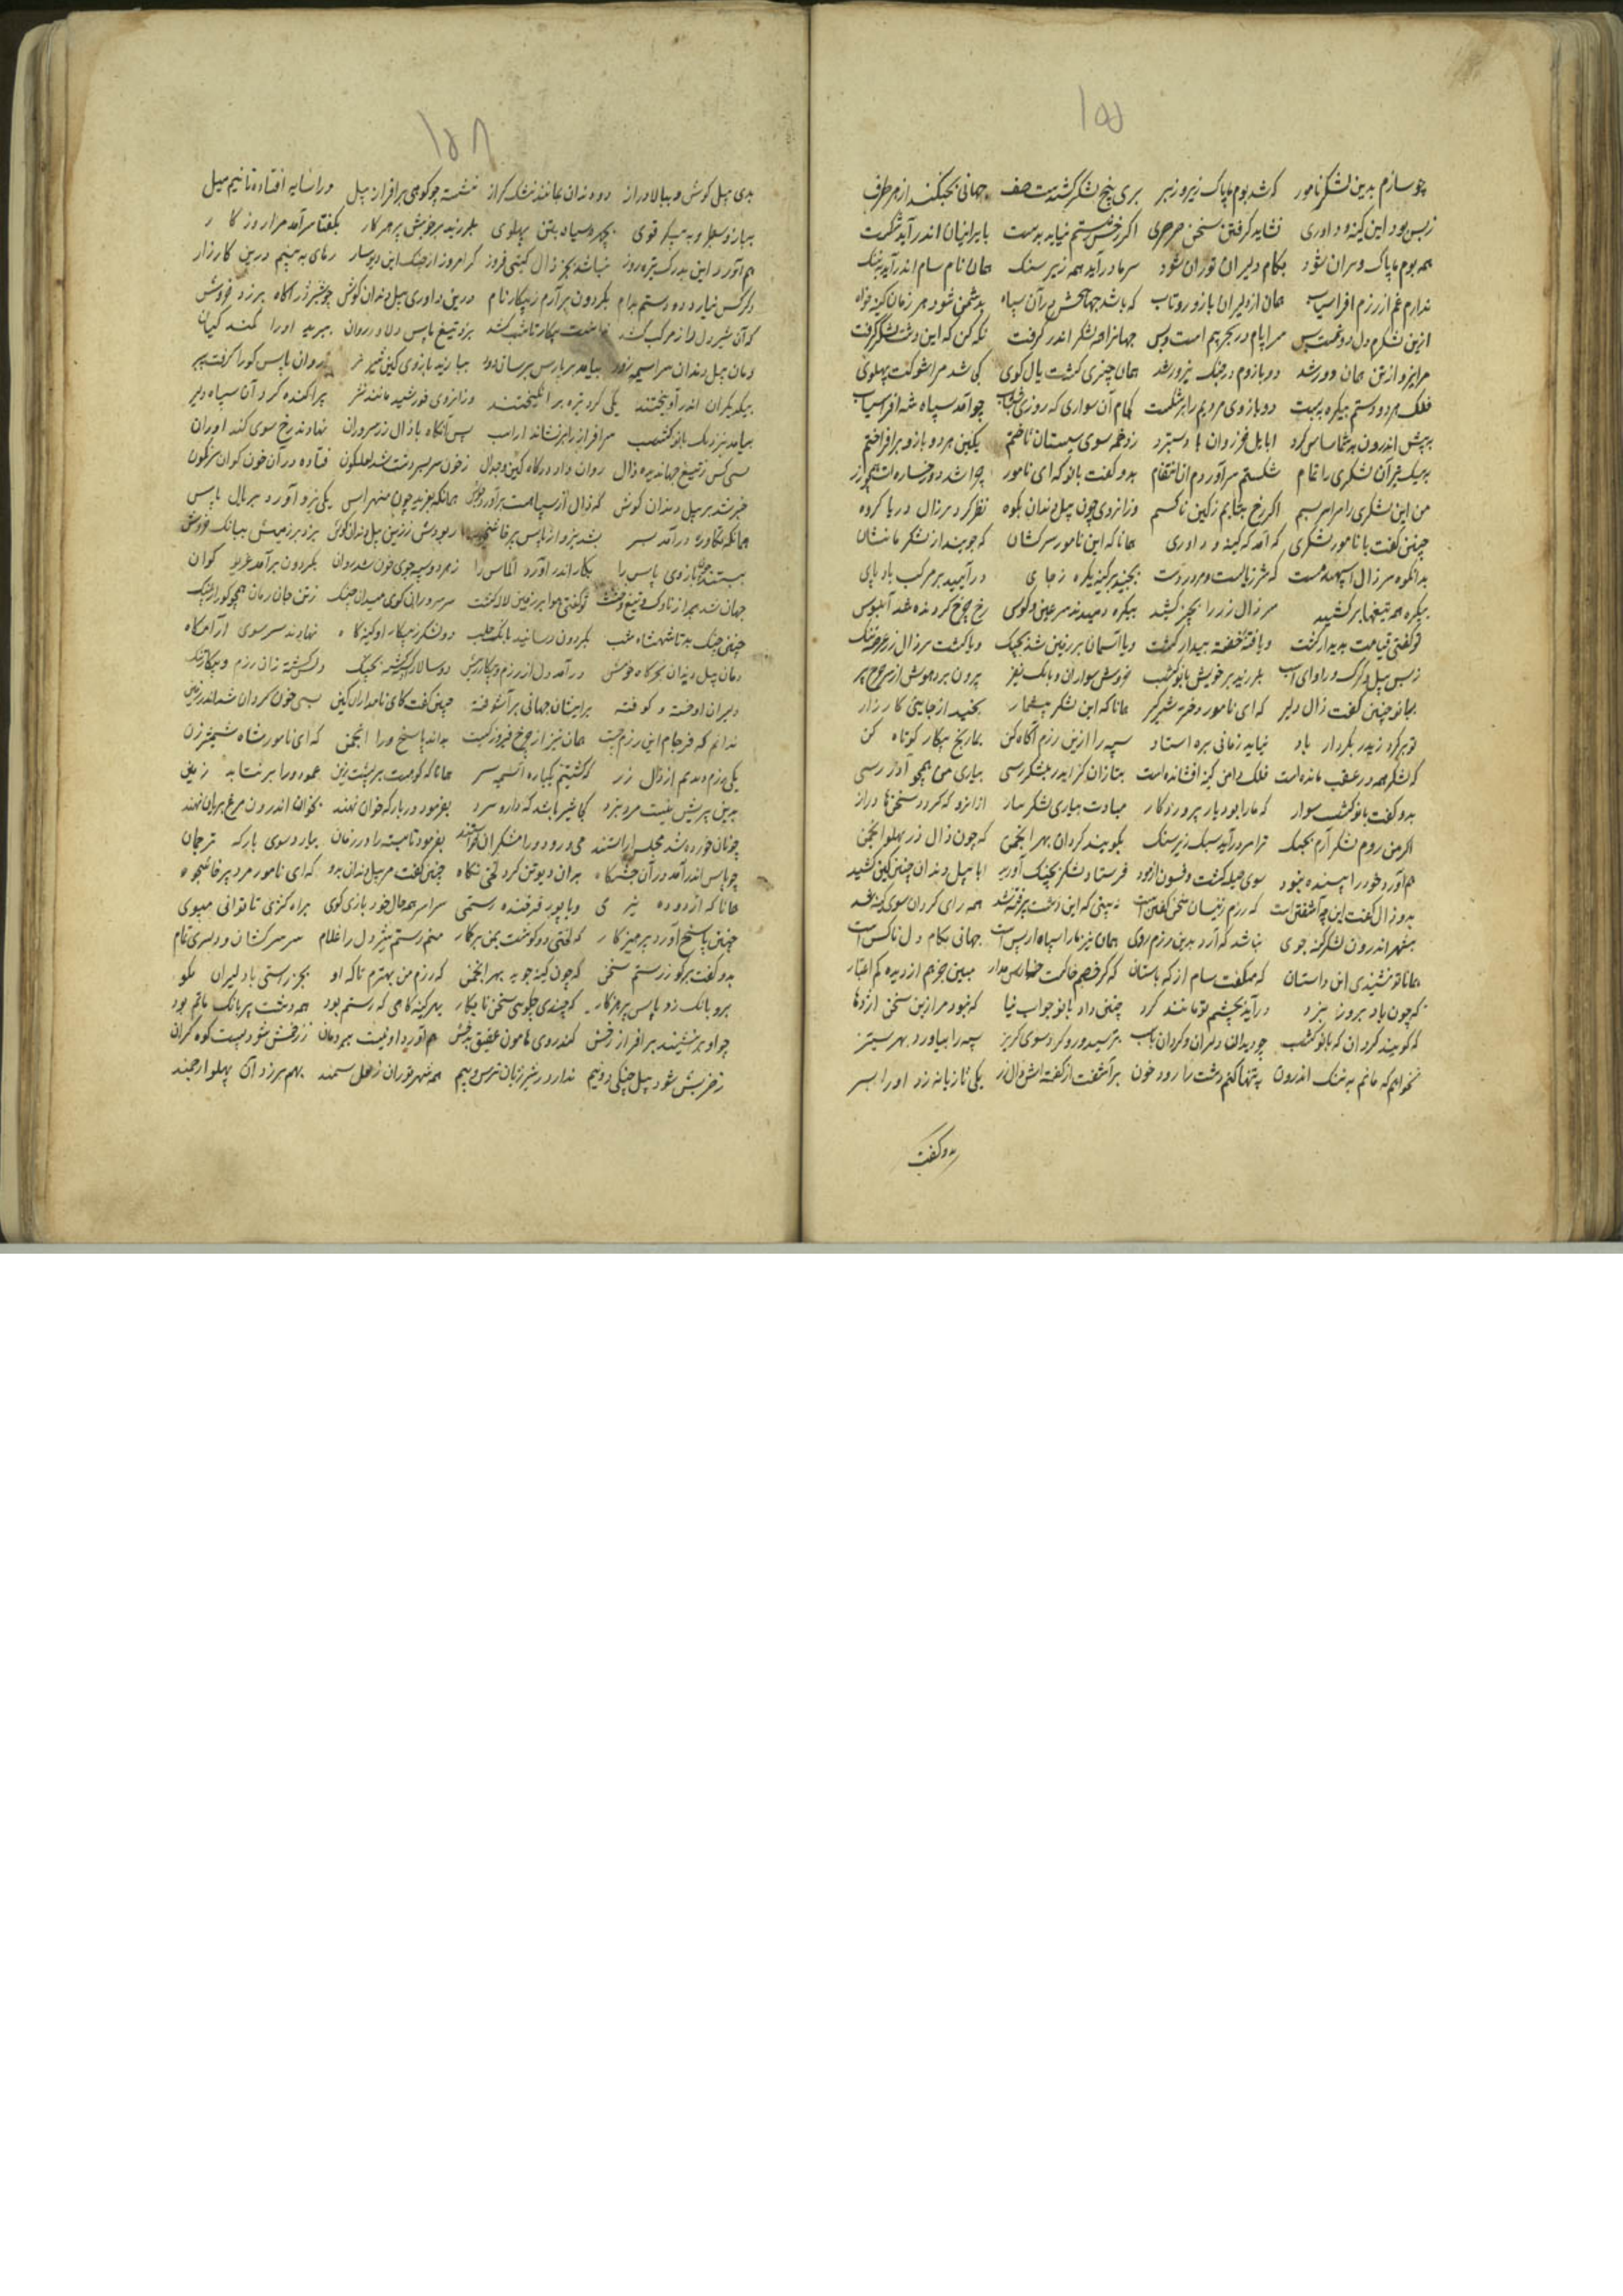 ۱۵۵
چو سازم بدین لشکر نامور که شد بوم ما پاک زیر و زبر بری پنج لشکر کشیدست صف جهانی بجنگند از هر طرف
ز بس بود این کینه و داوری نشاید گرفتن سخن سرسری اگر رخش رستم نیاید بدست بایرانیان اندر آید شکست
همه بوم ما پاک ویران شود بکام دلیران توران شود سر ما درآید همه زیر سنگ همان نام سام اندر آید به ننگ
ندارم غم از رزم افراسیاب همان از دلیران با زور و تاب که باشد جهانبخش در آن سپاه بدشمن شود هر زمان کینه خواه
ازین لشکرم دل دو نیمست و بس مرا بیم در بحر بیم است و بس جهان را همه لشکر اندر گرفت نگه کن که این دشت لشکر گرفت
مرا نیرو از تن همان دور شد دو بازوم در جنگ بی زور شد همان چنبری گشت یال گوی کجی شد مرا شوکت پهلوی
فلک هر دو دستم بیکره ببست دو بازوی مردیم را برشکست که آن سواری که روزی چو آمد سپاه شه افراسیاب
به پیش اندرون بد شماساس گرد ابا بیل خزروان با دستبرد ز دخمه سوی سیستان تاختم بکین هر دو بازو برافراختم
بیک تیر آن لشکری را تمام شکستم سر آوردم از انتقام بدو گفت بانو که ای نامور چرا شد دو رخساره ات همچو زر
من این لشکری را سراسر بسم اگر رخ بتابم ز کین ناکسم وز آنروی چون پیل دندان بکوه نظر کرد بر زال دریا گروه
چنین گفت با نامور لشکری که آمد گه کینه و داوری همانا که این نامور سرکشان که جویند از لشکر ما نشان
بدانگونه مر زال اسپهبد مست که شیر ژیانست و مرد ردست بجنبید بر کینه یکره ز جای درآیید بر مرکب بادپای
بیکره همه تیغها برکشید سر زال زر را بچنبر کشید بیکره دمیدند سرغین و کوس رخ چرخ گردنده شد آبنوس
تو گفتی قیامت پدیدار گشت و یا فتنه خفته بیدار گشت و یا آسمان بر زمین شد بجنگ و یا گشت بر زال زر عرصه تنگ
ز بس پیل و گرگ و را وای اسب بلرزید بر خویش بانو گشسب خروش سواران و بانگ نفیر برون برد هوش از سر چرخ پیر
ببانو چنین گفت زال دلیر که ای نامور دخت شیرگیر همانا که این لشکر بیشمار بجنبید از جا پی کارزار
تو برگرد زیدر بکردار باد نباید زمانی بره استاد سپه را ازین رزم آگاه کن بتاریخ پیکار کوتاه کن
که لشکر همه در عقب مانده است فلک دامن کینه افشانده است بتازان گر ایدر بلشکر رسی بیاری من همچو آذر رسی
بدو گفت بانو گشسب سوار که ما را بود یار پروردگار مبادت بیاری لشکر نیاز از انرو که گردد سخنها دراز
اگر من روم لشکر آرم بجنگ ترا مر درآید سبک زیر سنگ بگویند گردان بهر انجمن که چون زال زر پهلو انجمن
هم آورد خود را پسنده نبود سوی حیله گشت و فسون آزمود فرستاد لشکر بچنگ آورید ابا پیل دندان چنین کین کشید
بدو زال گفت این چه آشفتن است که رزم زنیسان نه سخن گفتن است نه بینی که این دشت پر فتنه شد همه رای گردان سوی کینه شد
بشهر اندرون لشکر کینه جوی نباشد که آرد بدین رزم روی همان نیز ما را سپاه از پس است جهانی بکام دل ناکس است
همانا تو نشنیدی این داستان که میگفت سام از گه باستان که گر خصم خاکست خوارش مدار مبین جرم از دیده کم اعتبار
که چون باد بروز نبرد درآید بچشم تو مانند گرد چنین داد بانو جواب نیا که نبود مرا زین سخن اژدها
که گویند گردان که بانو گشسب چو دید آن دلیران و گردان اسب بترسید و رو کرد سوی گریز سپه را بیاورد بهر ستیز
نخواهم که مانم به ننگ اندرون به تنها کنم دشت را رود خون برآشفت از گفته اش زال زر یکی تازیانه زد او را بسر
بدو گفت
۱۵۶
بدی پیل گوش و ببالا دراز دو دندان بمانند نشک گراز نشسته چو کوهی بر افراز پیل ورا سایه افتاده تا نیم میل
ببازو سطبر و به پیکر قوی بچهره سیاه بتن پهلوی بلرزید بر خویش پرهیزکار بگفتا سرآمد مرا روزگار
هم آورد این بد رگ تیره روز نباشد بجز زال گیتی فروز گر امروز از جنگ این دیوسار رهای به بینم درین کارزار
دگر کس نیارد دد و دستم بدام بگردون برآرم ز پیکار نام درین داوری پیل دندان گوش چو شیر ژر آگاه برزد خروش
که آن شیردل را ز مرکب کشد بزد تیغ پاس دلاور روان ببرید او را کمند کیان
دمان پیل دندان سراسیمه زود بیامد بر پارس برسان دود بیازید بازوی کین شیر نر روان پاس گو را گرفت ببر
بیکدیگران اندر آویختند یکی گرد تیره برانگیختند وز آنروی خورشید مانند نر پراکنده کرد آن سپاه دلیر
بیامد بنزدیک بانو گشسب سرافراز را برنشاند از اسب پس آنگاه با زال زر سروران نهادند رخ سوی کندآوران
بسی کس ز تیغ جهاندیده زال روان داد در گاه کین و جدال ز خون سر بسر دشت شد لعلگون فتاده در آن خون گوان سرنگون
خبر شد بر پیل دندان گوش که زال از سپاهت برآورد جوش همانگه بغرید چون منهراس یکی نیزه آورد بر یال پاس
همانگه تکاور درآمد بسر بشد نیزه از پاس پرخاشخر ربودش ز زین پیل دندان گوش بزد بر زمینش ببانگ خروش
ببستند بازوی پاس را بکار اندر آورد الماس را ز هر دو سپه جوی خون شد روان بگردون برآمد غریو گوان
جهان شد پر از ناوک و تیغ و خشت تو گفتی هوا بر زمین لاله کشت سر سروران گوی میدان جنگ ز تن جان رمان همچو گور از پلنگ
چنین جنگ بد تا شهنشاه شب بگردون رسانید بانگ جلب دو لشکر ز پیکار او کینه گاه نهادند سر سوی آرامگاه
دمان پیل دندان بخرگاه خویش درآمد دل از رزم و پیکار ریش دو سالار گشته بجنگ دلش گشته زان رزم و پیکار تنگ
دلیران اوخسته و کوفته بر ایشان جهانی برآشوفته چنین گفت کای نامداران کین بسی خون گردان شد اندر زمین
ندانم که فرجام این رزم چیست همان نیز از چرخ فیروز کیست بداند پاسخ ورا انجمن که ای نامور شاه شمشیرزن
یکی رزم دیدیم از زال زر که گشتیم یکباره آسیمه سر همانا که کوهست بر پشت زین عمود ورا برنتابد زمین
بدین پیریش نیست مرد نبرد کجا شیر باشد که دارد سرد بفرمود در بارگه خوان نهند بخوان اندرون مرغ بریان نهند
چو نان خورده شد مجلس آراستند می و رود و رامشگران خواستند بفرمود تا بسته را در زمان بیارد سوی بارگه ترجمان
چو پاس اندر آمد در آن جشنگاه بر آن دیو تن کرد لختی نگاه چنین گفت مر پیل دندان بدو که ای نامور مرد پرخاشجو
همانا که از دوده نیرمی و یا پور فرخنده رستمی سراسر همه حال خود بازگوی براه کژی تا توانی مپوی
چنین پاسخ آورد پرهیزکار که لختی دو گوشت بمن برگمار منم رستم شیردل را غلام سر سرکشان و دلیری تمام
بدو گفت برگو ز رستم سخن که چون کینه جوید بهر انجمن که رزم من بهترم تا که او بجز راستی با دلیران مگو
برو بانگ زد پاس پرهیزکار که چندی چگویی سخن نابکار بهر کینه گاهی که رستم بود همه دشت پر بانگ ماتم بود
چو او برنشیند بر افراز رخش کند روی هامون عقیق بدخش هم آورد او نیست ببر دمان ز زخمش شود پست کوه گران
ز خرپشش شود پیل جنگی دو نیم ندارد ز شیر ژیان ترس و بیم همه شهر توران ز نعل سمند بهم برزد آن پهلو ارجمند